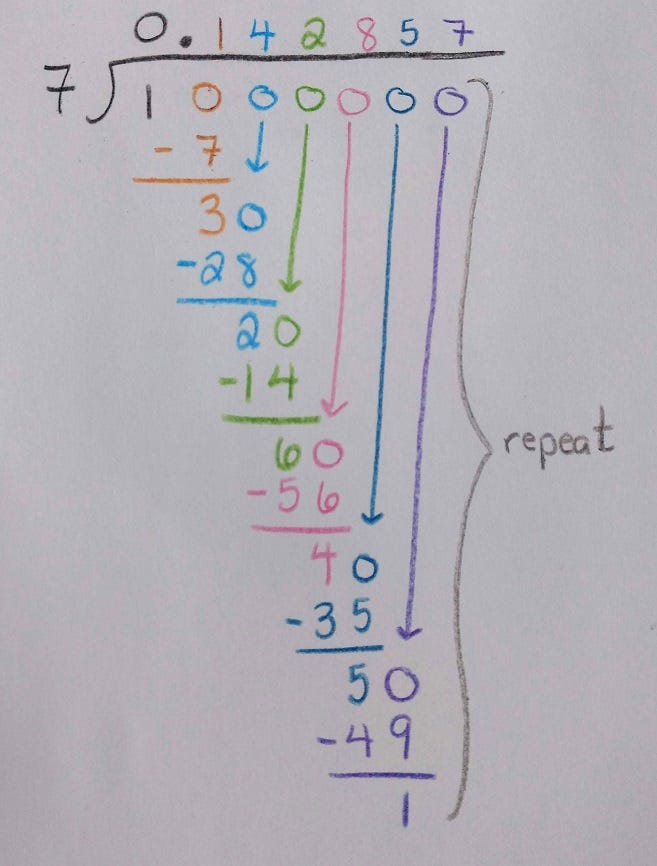 0.142857
7)1000000
-7
30
-28
20
-14
60
-56
repeat
40
-35
50
-49
1